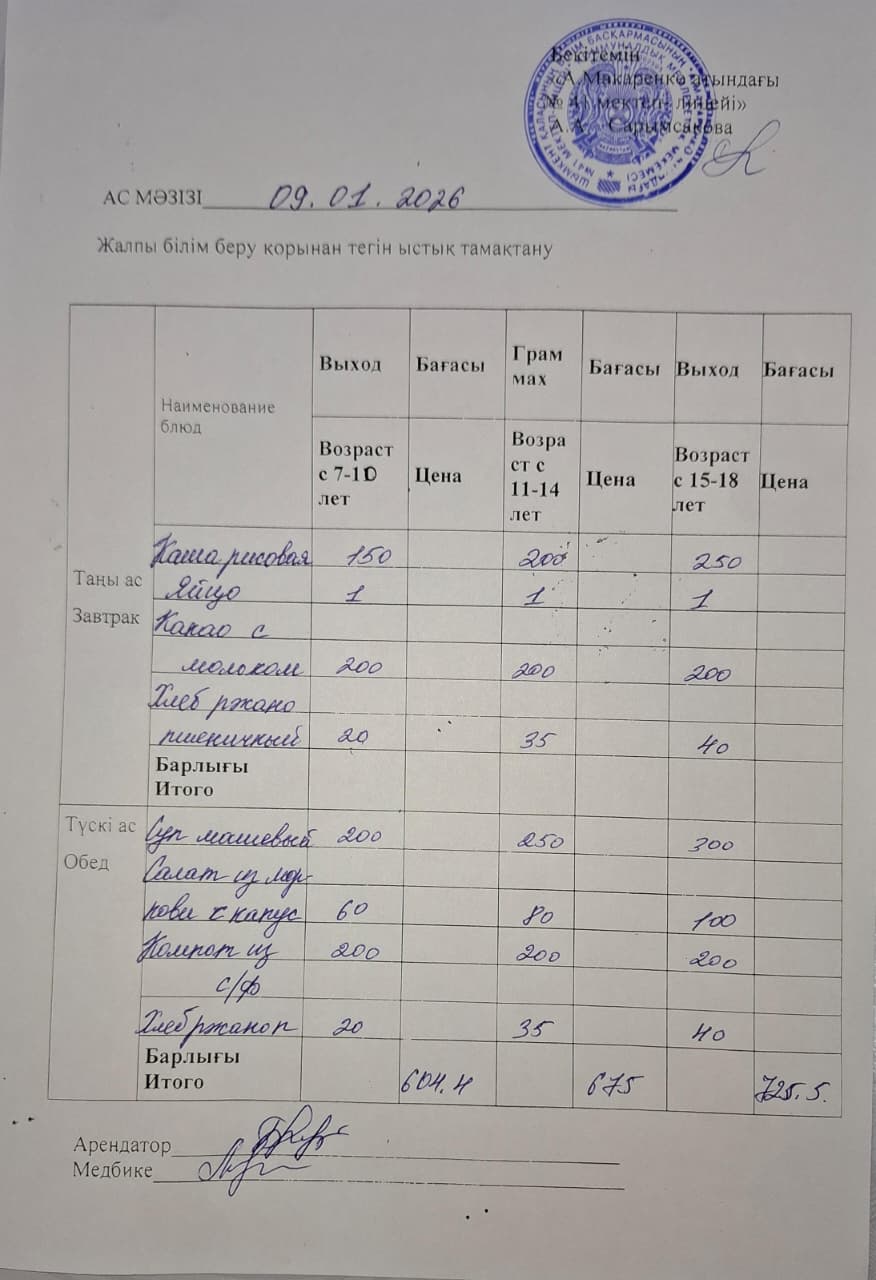 Бекітемін
«А.Макаренко атындағы
№ 41 мектеп- лицейі»
А.А. Сарымсақова
АС МӘЗІЗІ 09.01.2026
Жалпы білім беру қорынан тегін ыстық тамақтану
Наименование блюд Выход Бағасы Грам мах Бағасы Выход Бағасы
Возраст с 7-10 лет Цена Возра ст с 11-14 лет Цена Возраст с 15-18 лет Цена
Таңы ас
Завтрак
Каша рисовая 150 200 250
Яйцо 1 1 1
Какао с
молоком 200 200 200
Хлеб ржано
пшеничный 20 35 40
Барлығы
Итого
Түскі ас
Обед
Суп машевый 200 250 300
Салат из мор-
кови с капус 60 80 100
Компот из 200 200 200
с/ф
Хлеб ржано п 20 35 40
Барлығы
Итого 604.4 675 725.5.
Арендатор
Медбике